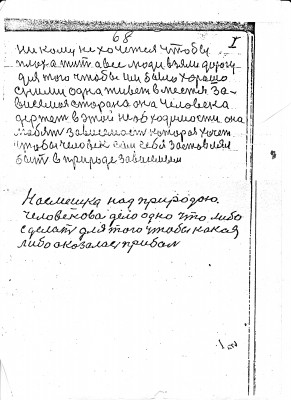 68
I
никому не хочется чтобы
плоха жит а все люди взяли дорогу
для того чтобы им было хорошо
с ними одна живет вместя за-
висемоя сторона она человека
держет в этой необходимости она
любит зависемост которая хочет
чтобы человек сам себя заставлял
быт в природе зависемым
Насмешка над природою.
Человекова дело одно что либо
сделат для того чтобы какая
либо оказалас прибал